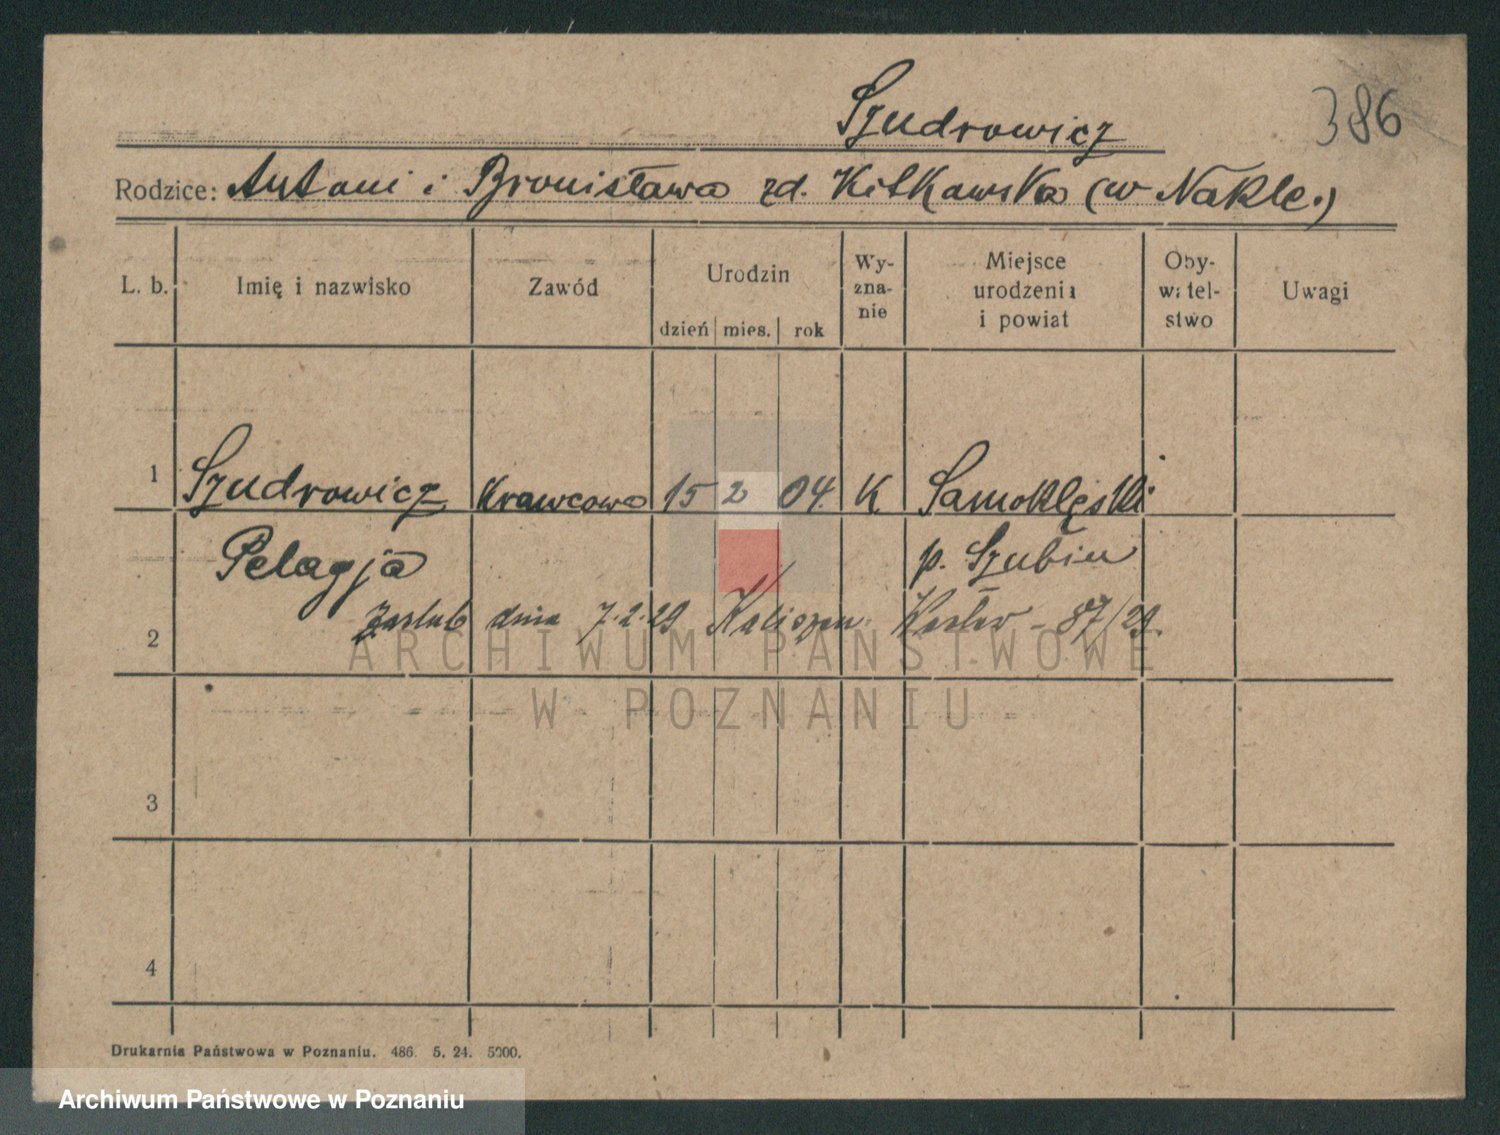 Szudrowicz
386
Rodzice: Antoni i Bronisława zd. Kitkowska (w Nakle.)
L. b. Imię i nazwisko Zawód Urodzin dzień mies. rok Wyznanie Miejsce urodzenia i powiat Obywatelstwo Uwagi
1 Szudrowicz Krawcowa 15 2 04. K Samoklęski
Pelagja p. Szubin
Zaślub dnia 7.2.29 87/29.
2
ARCHIWUM PAŃSTWOWE
W POZNANIU
3
4
Drukarnia Państwowa w Poznaniu. 486. 5. 24. 5000.
Archiwum Państwowe w Poznaniu